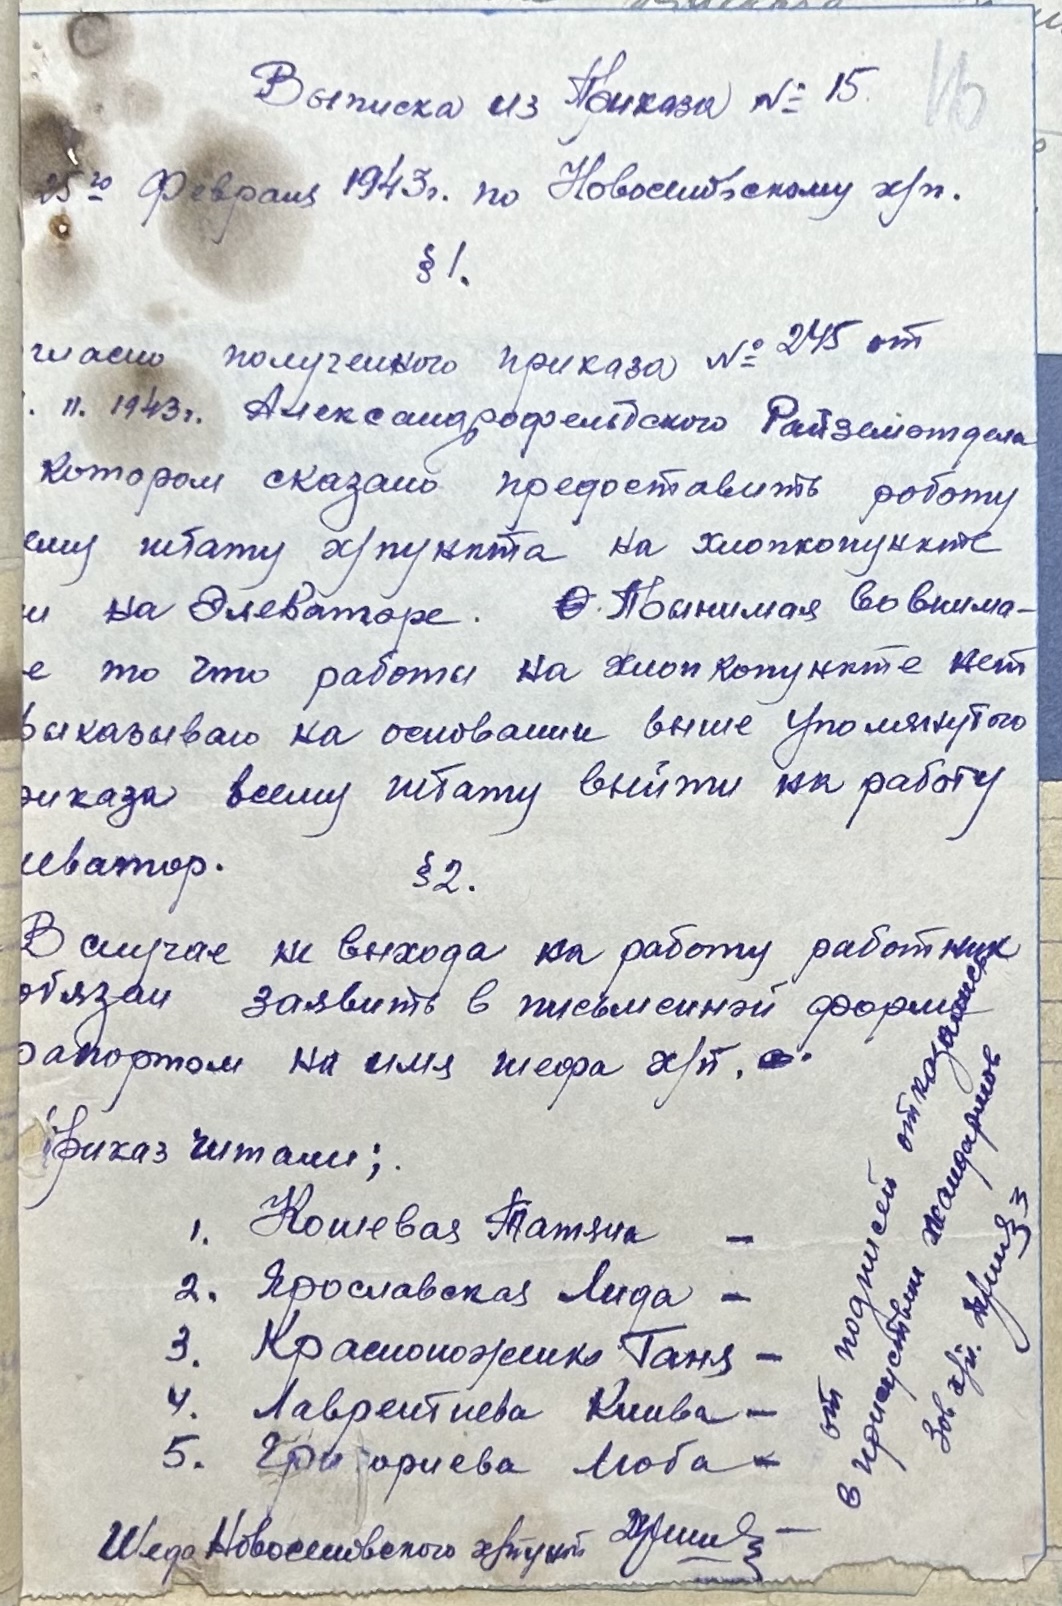 Выписка из Приказа № 15.
25го Февраля 1943г. по Новосельскому х/п.
§ 1.
гласно полученного приказа № 245 от
. II. 1943г. Александрофельдского Райземотдела
котором сказано предоставить роботу
ему штату х/пункта на хлопкопункте
и на Элеваторе. Принимая во внима-
е то что работы на хлопкопункте нет
рыказываю на основании выше упомянутого
риказа всему штату выйти на работу
иватор.
§ 2.
В случае не выхода на работу работник
обязан заявить в письменной форме
рапортом на имя шефа х/п.
Приказ читали;
1. Кошевая Татяна –
2. Ярославская Лида –
3. Красноножико Таня –
4. Лаврентиева Клава –
5. Григориева Люба –
Шефа Новоселовского х/пункт
от подписей отказались
в присутствии жандармов
Зав х/п.